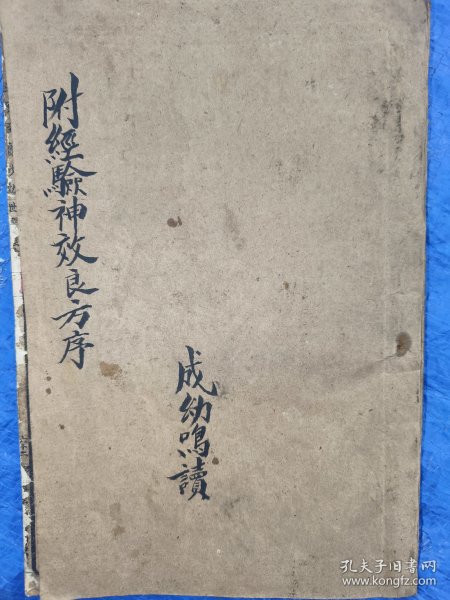 附經驗神效良方序
成幼鳴讀
孔夫子旧书网
www.kongfz.com